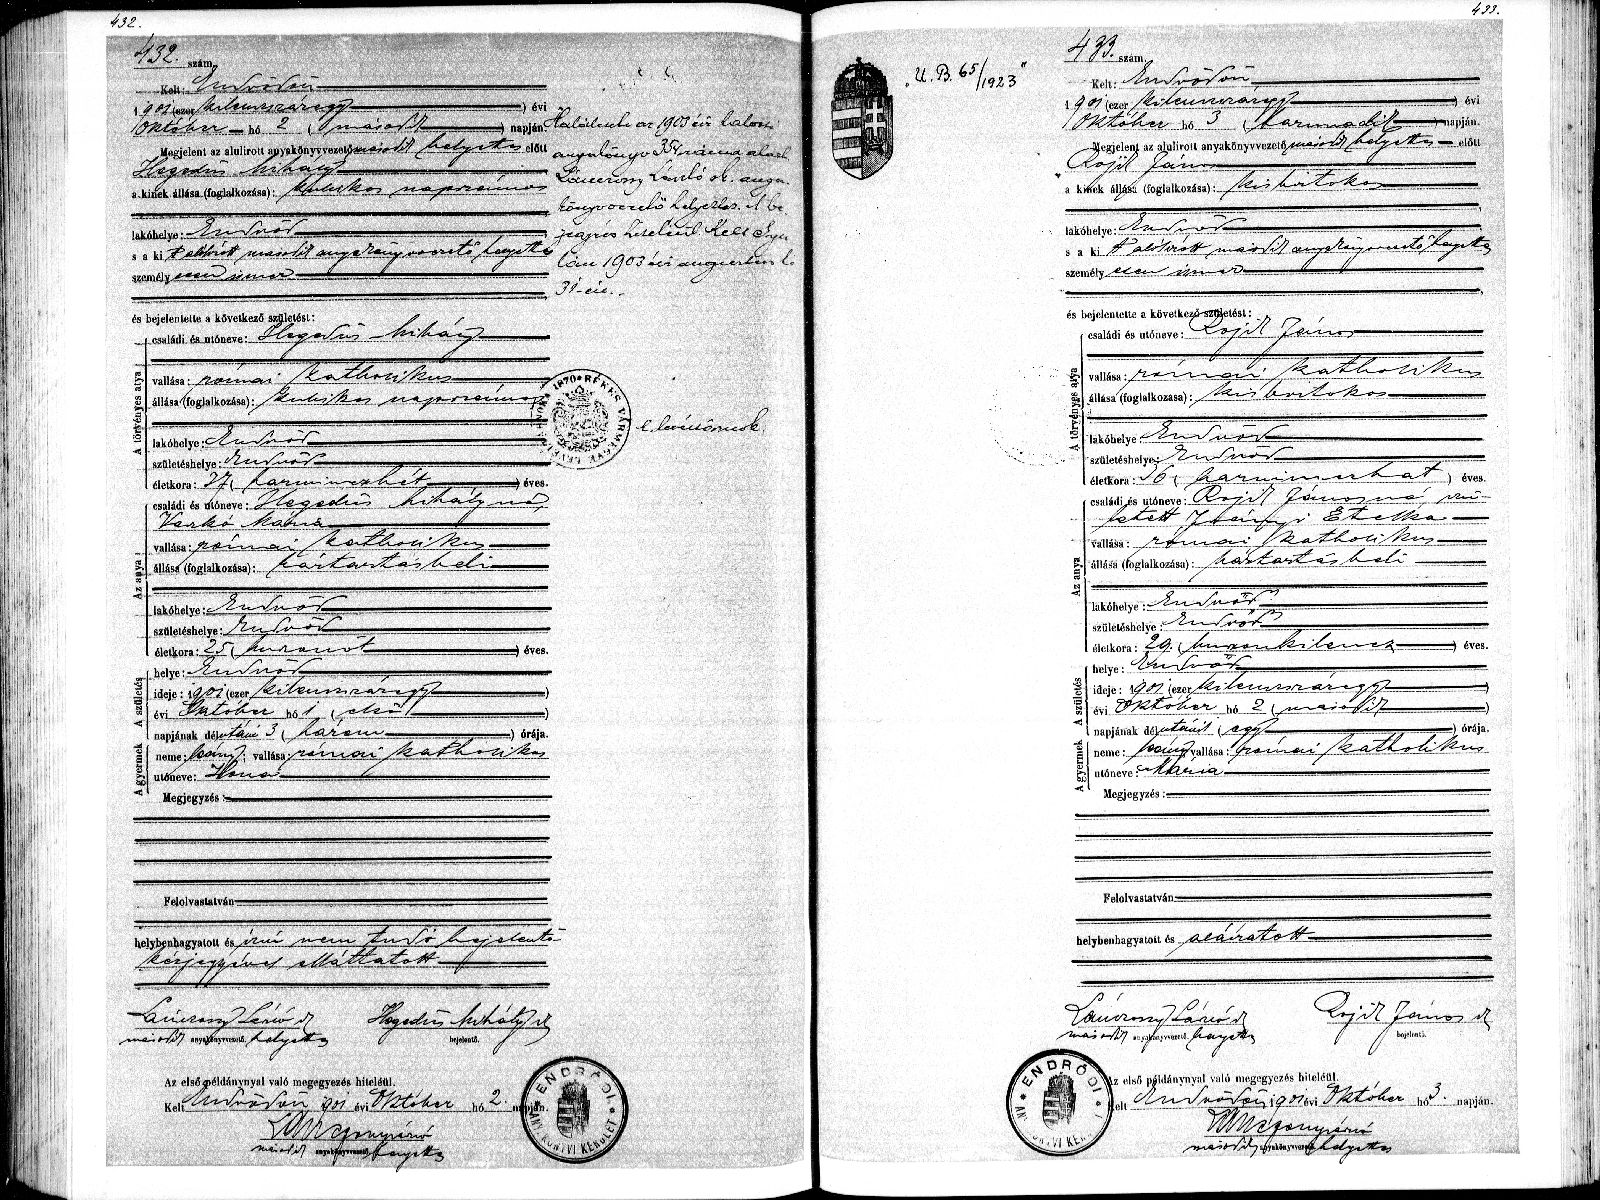 432.
432. szám.
Kelt: Endrődön
1901 (ezer kilenczszázegy) évi
Október hó 2 (második) napján.
Megjelent az alulirott anyakönyvvezető második helyettes előtt
Hegedüs Mihály
a kinek állása (foglalkozása): kubikos napszámos
lakóhelye: Endrőd
s a ki t alulirott második anyakönyvvezető helyettes
személyesen ismer
és bejelentette a következő születést:
A törvényes atya
családi és utóneve: Hegedüs Mihály
vallása: római katholikus
állása (foglalkozása): kubikos napszámos
lakóhelye: Endrőd
születéshelye: Endrőd
életkora: 37 (harminczhét) éves.
Az anya
családi és utóneve: Hegedüs Mihályné,
Varkó Mária
vallása: római katholikus
állása (foglalkozása): háztartásbeli
lakóhelye: Endrőd
születéshelye: Endrőd
életkora: 25 (huszonöt) éves.
A születés
helye: Endrőd
ideje: 1901 (ezer kilenczszázegy)
évi Október hó 1 (első)
napjának délutáni 3 (három) órája.
A gyermek
neme: leány; vallása: római katholikus
utóneve: Ilona
Megjegyzés:
Felolvastatván
helybenhagyatott és irni nem tudó bejelentő
kézjegyével elláttatott
Hegedüs Mihály
második anyakönyvvezető helyettes
bejelentő.
Az első példánynyal való megegyezés hiteléül.
Kelt Endrődön 1901 évi Október hó 2. napján.
második anyakönyvvezető helyettes
ENDRŐDI
ANYAKÖNYVI KERÜLET
az 1903 évi halotti
anyakönyv
László
anyakönyvvezető helyettes.
hiteléül Kelt Gyu
lán 1903 évi augusztus hó
31-én.
BÉKÉS VÁRMEGYE LEVÉLTÁRA
1870
433.
"U. B. 65/1923"
433. szám.
Kelt: Endrődön
1901 (ezer kilenczszázegy) évi
Október hó 3 (harmadik) napján.
Megjelent az alulirott anyakönyvvezető második helyettes előtt
Rojik János
a kinek állása (foglalkozása): kisbirtokos
lakóhelye: Endrőd
s a ki t alulirott második anyakönyvvezető helyettes
személyesen ismer
és bejelentette a következő születést:
A törvényes atya
családi és utóneve: Rojik János
vallása: római katholikus
állása (foglalkozása): kisbirtokos
lakóhelye: Endrőd
születéshelye: Endrőd
életkora: 36 (harminczhat) éves.
Az anya
családi és utóneve: Rojik Jánosné szü-
letett Iványi Etelka
vallása: római katholikus
állása (foglalkozása): háztartásbeli
lakóhelye: Endrőd
születéshelye: Endrőd
életkora: 29. (huszonkilencz) éves.
A születés
helye: Endrőd
ideje: 1901 (ezer kilenczszázegy)
évi Október hó 2 (második)
napjának délutáni (egy) órája.
A gyermek
neme: leány; vallása: római katholikus
utóneve: Mária
Megjegyzés:
Felolvastatván
helybenhagyatott és aláiratott
Rojik János
második anyakönyvvezető helyettes
bejelentő.
Az első példánynyal való megegyezés hiteléül.
Kelt Endrődön, 1901 évi Október hó 3. napján.
második anyakönyvvezető helyettes
ENDRŐDI